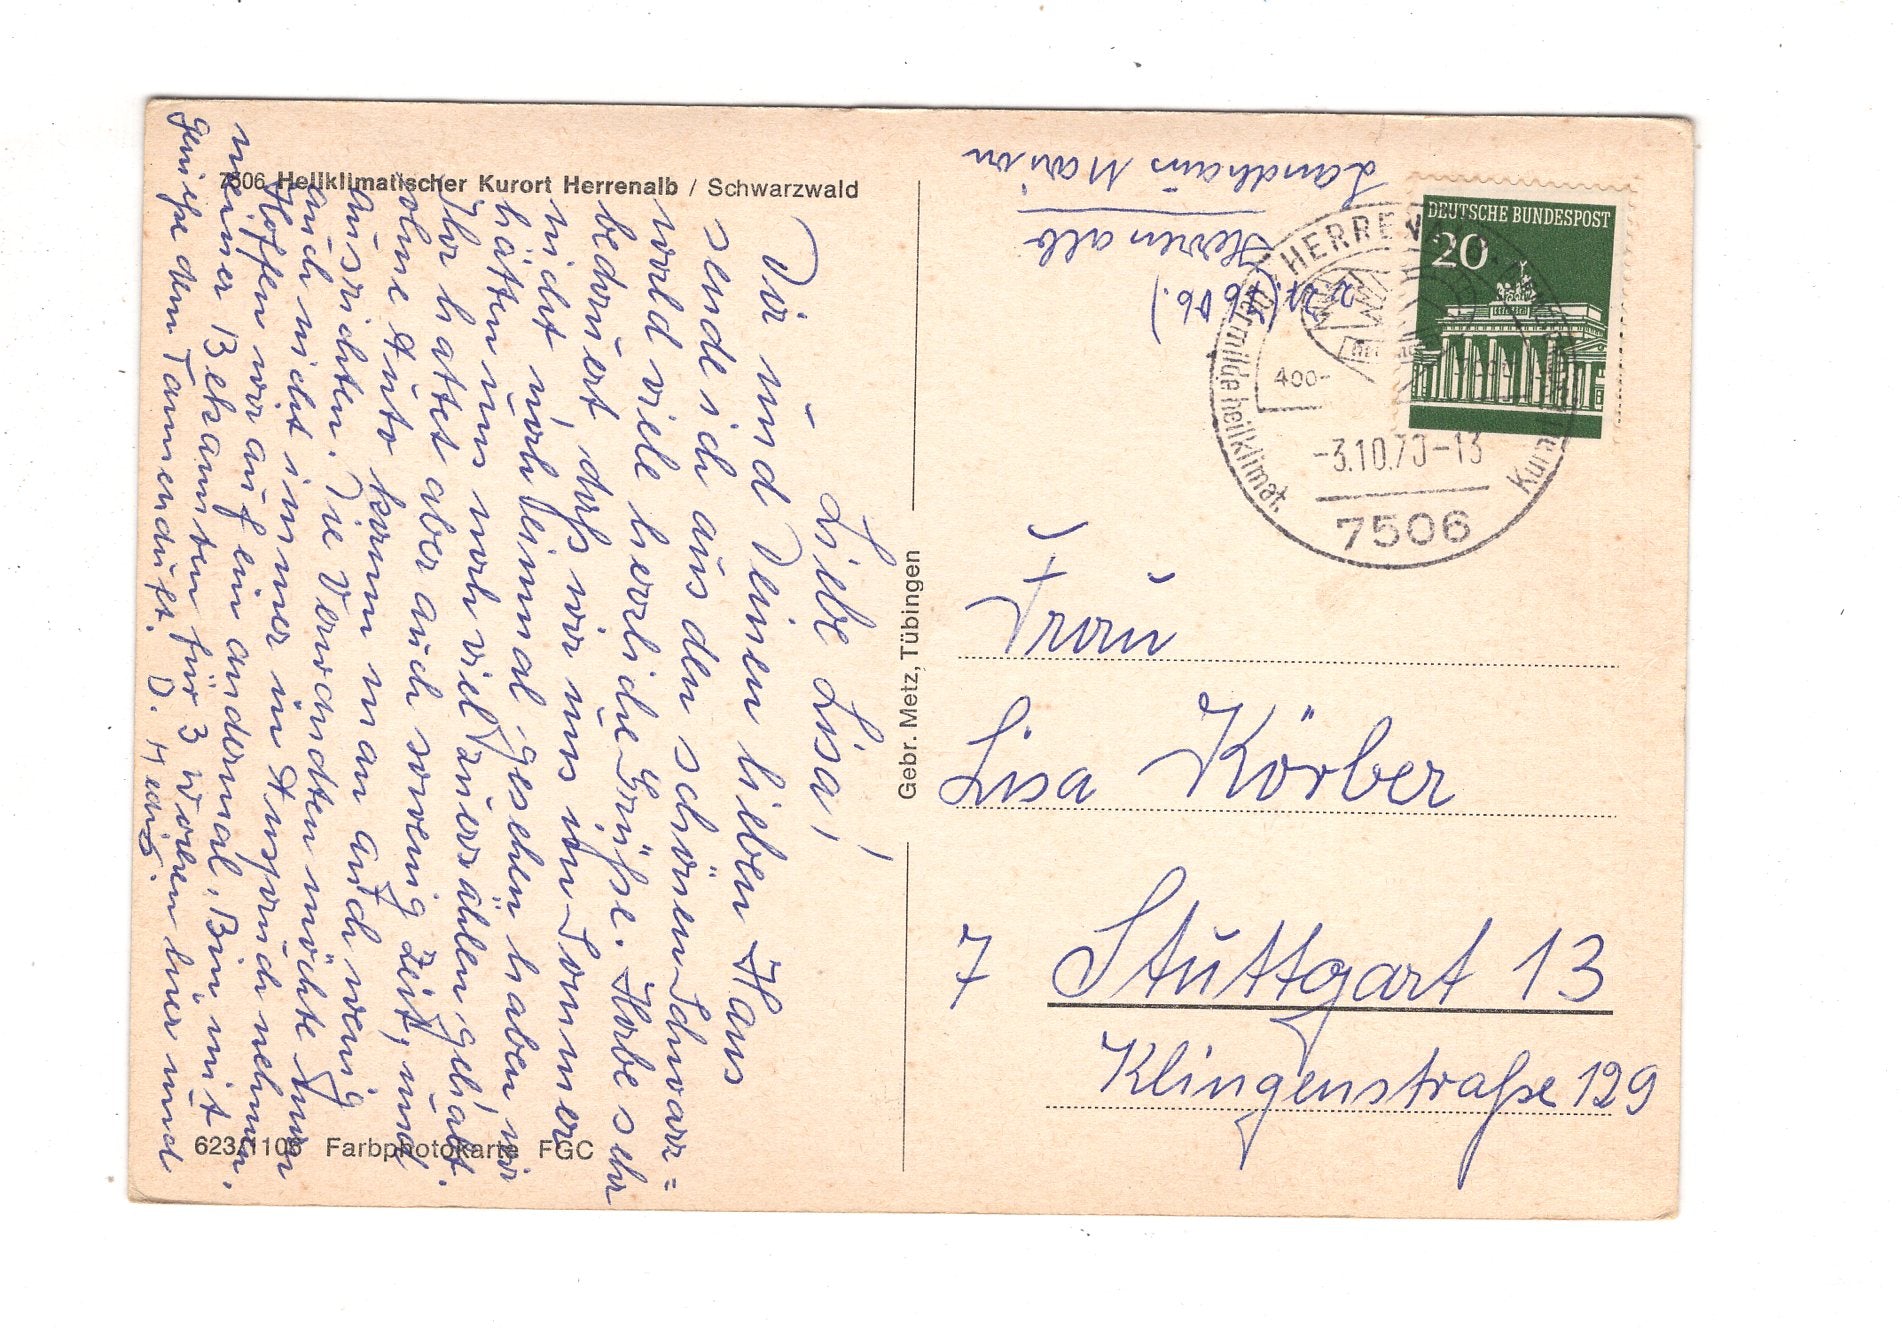 7506 Heilklimatischer Kurort Herrenalb / Schwarzwald
Liebe Lisa!
Dir und Deinen lieben Haus
sende ich aus den schönen Schwarz=
wald viele herrliche Grüße. Habe sehr
bedauert, daß wir uns im Sommer
nicht noch einmal gesehen haben, wir
hätten uns noch viel zu erzählen gehabt.
Ihr hattet aber auch so wenig Zeit, und
ohne Auto kann man auch wenig
ausrichten. Die Verwandten möchte man
auch nicht immer in Anspruch nehmen.
Hoffen wir auf ein andermal. Bin mit
meiner Bekannten für 3 Wochen hier und
genieße den Tannenduft. D. Hedwig.
623/1106 Farbphotokarte FGC
Gebr. Metz, Tübingen
Landhaus Marion
Herrenalb
DEUTSCHE BUNDESPOST
20
HERRENALB
400-
-3.10.70-13
7506
milde heilklimat.
Frau
Lisa Körber
7 Stuttgart 13
Klingenstraße 129